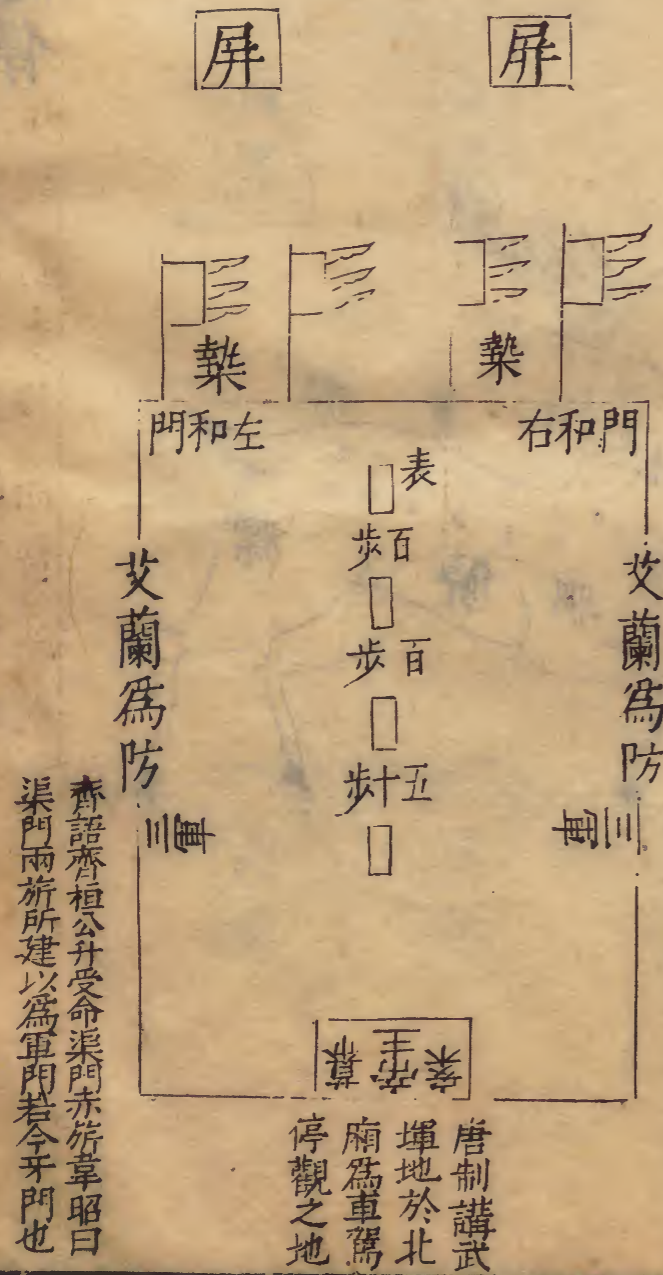 屏
屏
槷
槷
右和門
左和門
表
百步
百步
五十步
艾蘭爲防
艾蘭爲防
三軍
三軍
幕
帝王
案
唐制講武
墠地於北
廂爲車駕
停觀之地
齊語齊桓公升受命渠門赤旂韋昭曰
渠門兩旂所建以爲軍門若今牙門也